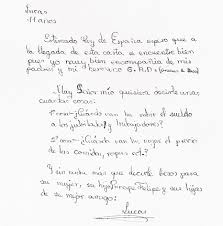 Lucas
11 años
Estimado Rey de España espero que a
la llegada de esta carta se encuentre bien
pues yo muy bien en compañía de mis
padres y mi hermano G.A.D
Muy Señor mío quisiera decirle unas
cuantas cosas:
1º cosa-¿Cuándo van ha subir el sueldo
a los jubilados y trabajadores?
2º cosa-¿Cuándo van ha bajar el precio
de las comidas, ropas, etc?
Y sin nada más que decirle besos para
su mujer, su hijo Felipe y sus hijas
de su mejor amigo:
Lucas